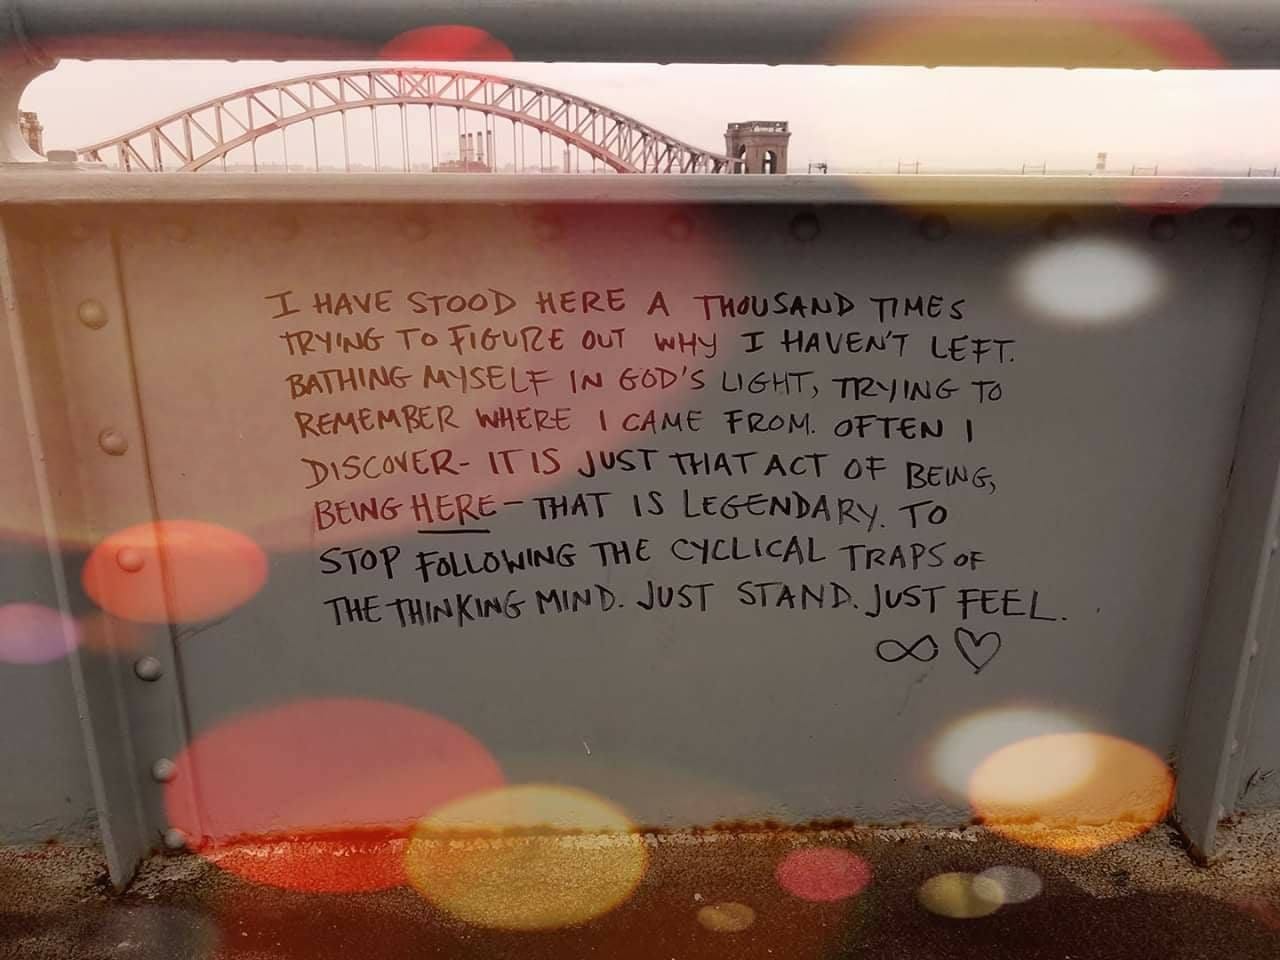 I HAVE STOOD HERE A THOUSAND TIMES
TRYING TO FIGURE OUT WHY I HAVEN'T LEFT.
BATHING MYSELF IN GOD'S LIGHT, TRYING TO
REMEMBER WHERE I CAME FROM. OFTEN I
DISCOVER- IT IS JUST THAT ACT OF BEING,
BEING HERE - THAT IS LEGENDARY. TO
STOP FOLLOWING THE CYCLICAL TRAPS OF
THE THINKING MIND. JUST STAND. JUST FEEL.
∞ ♡